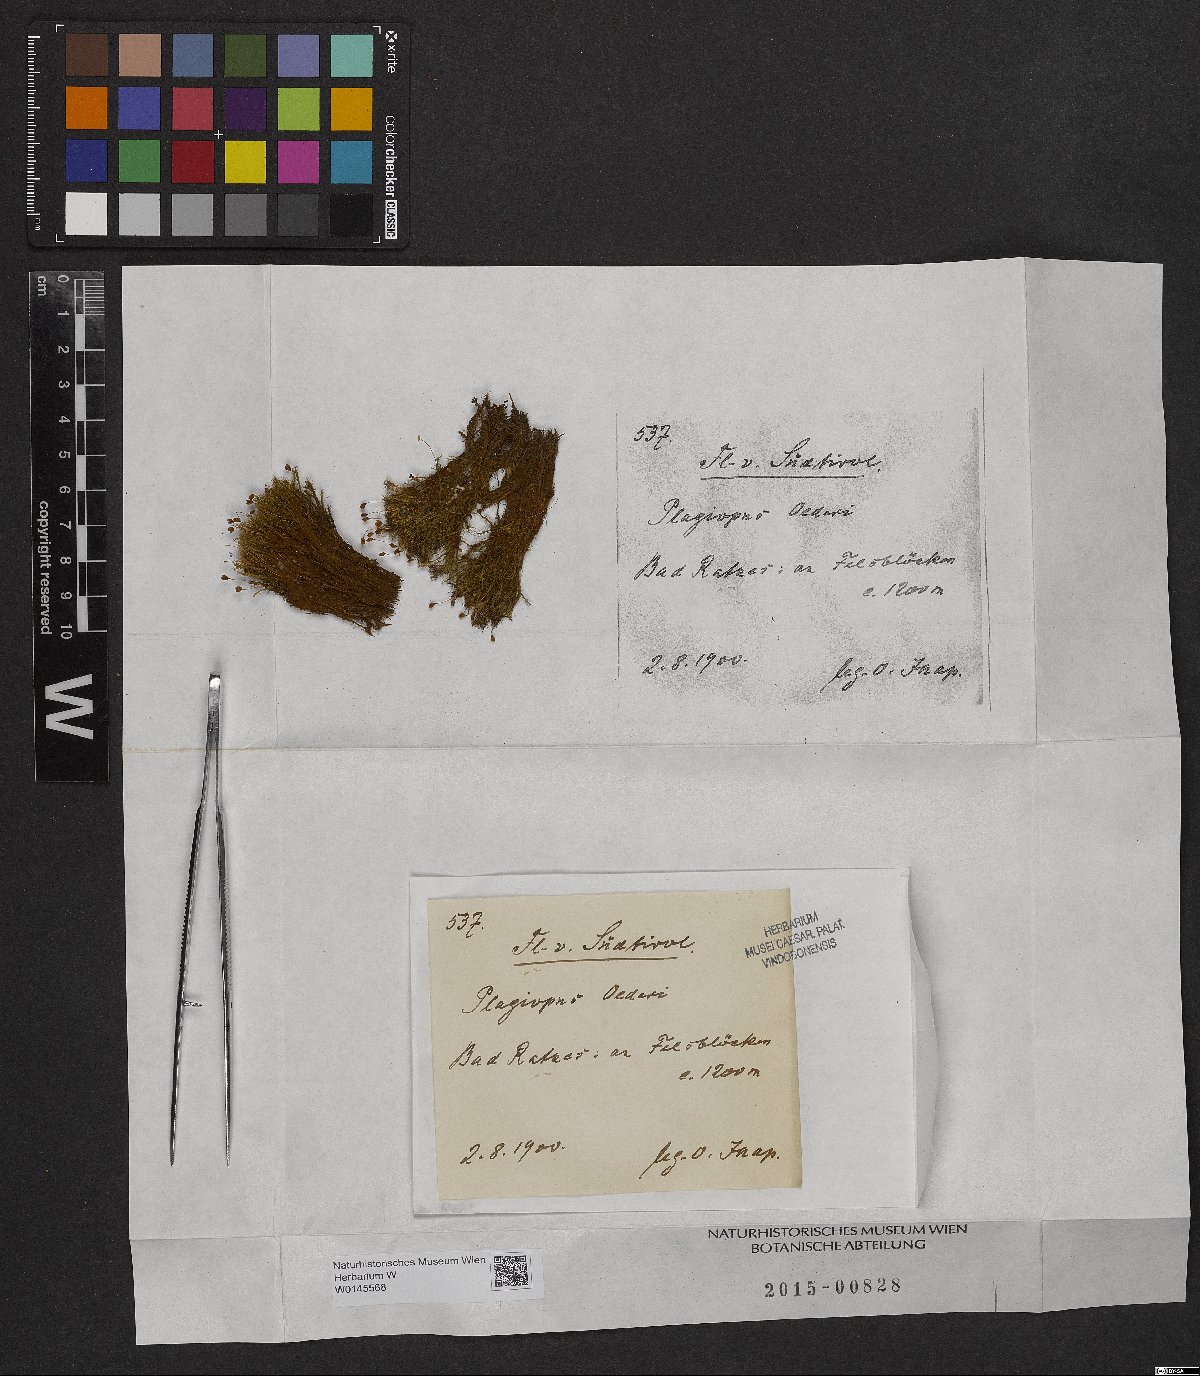 x-rite
colorchecker CLASSIC
mm
cm
0 1 2 3 4 5 6 7 8 9 10
copyright reserved
W
537.
Fl. v. Südtirol.
Plagiopus Oederi
Bad Ratzes: an Felsblöcken
c. 1200 m
2.8.1900.
leg. O. Jaap.
537.
Fl. v. Südtirol.
HERBARIUM
MUSEI CAESAR. PALAT.
VINDOBONENSIS
Plagiopus Oederi
Bad Ratzes: an Felsblöcken
c. 1200 m
2.8.1900.
leg. O. Jaap.
NATURHISTORISCHES MUSEUM WIEN
BOTANISCHE ABTEILUNG
2015-00828
Naturhistorisches Museum Wien
Herbarium W
W0145568